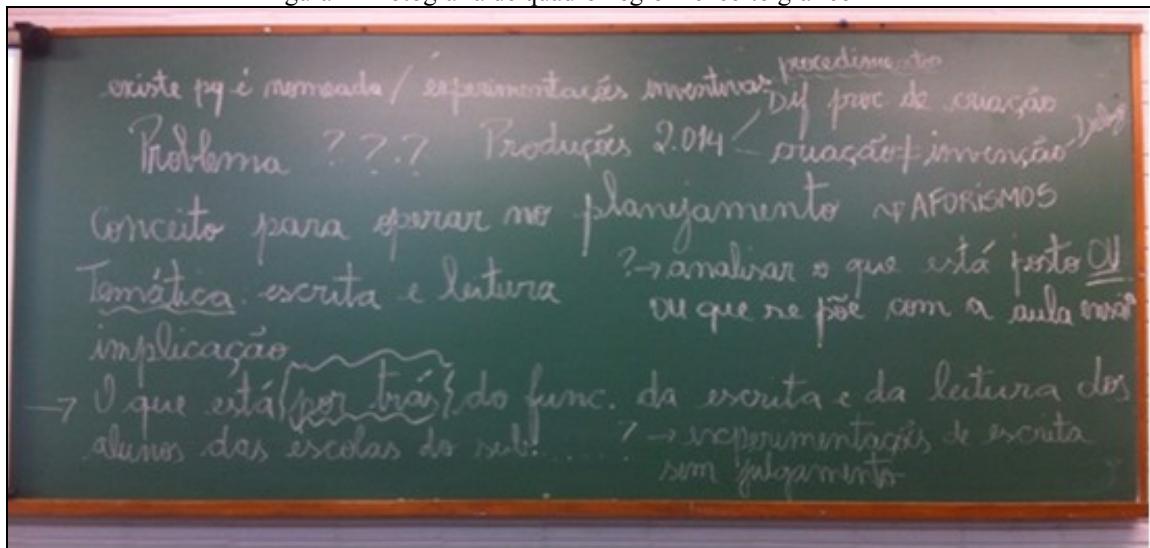 procedimento
existe pq é nomeada / experimentações inventivas Dif proc de criação
Problema ? ? ? Produções 2.014 criação + invenção
Conceito para operar no planejamento AFORISMOS
Temática escrita e leitura ? → analisar o que está posto OU
ou que se põe com a aula
implicação
→ O que está {por trás} do func. da escrita e da leitura dos
alunos das escolas do sub....... ? → experimentações de escrita
sem julgamento